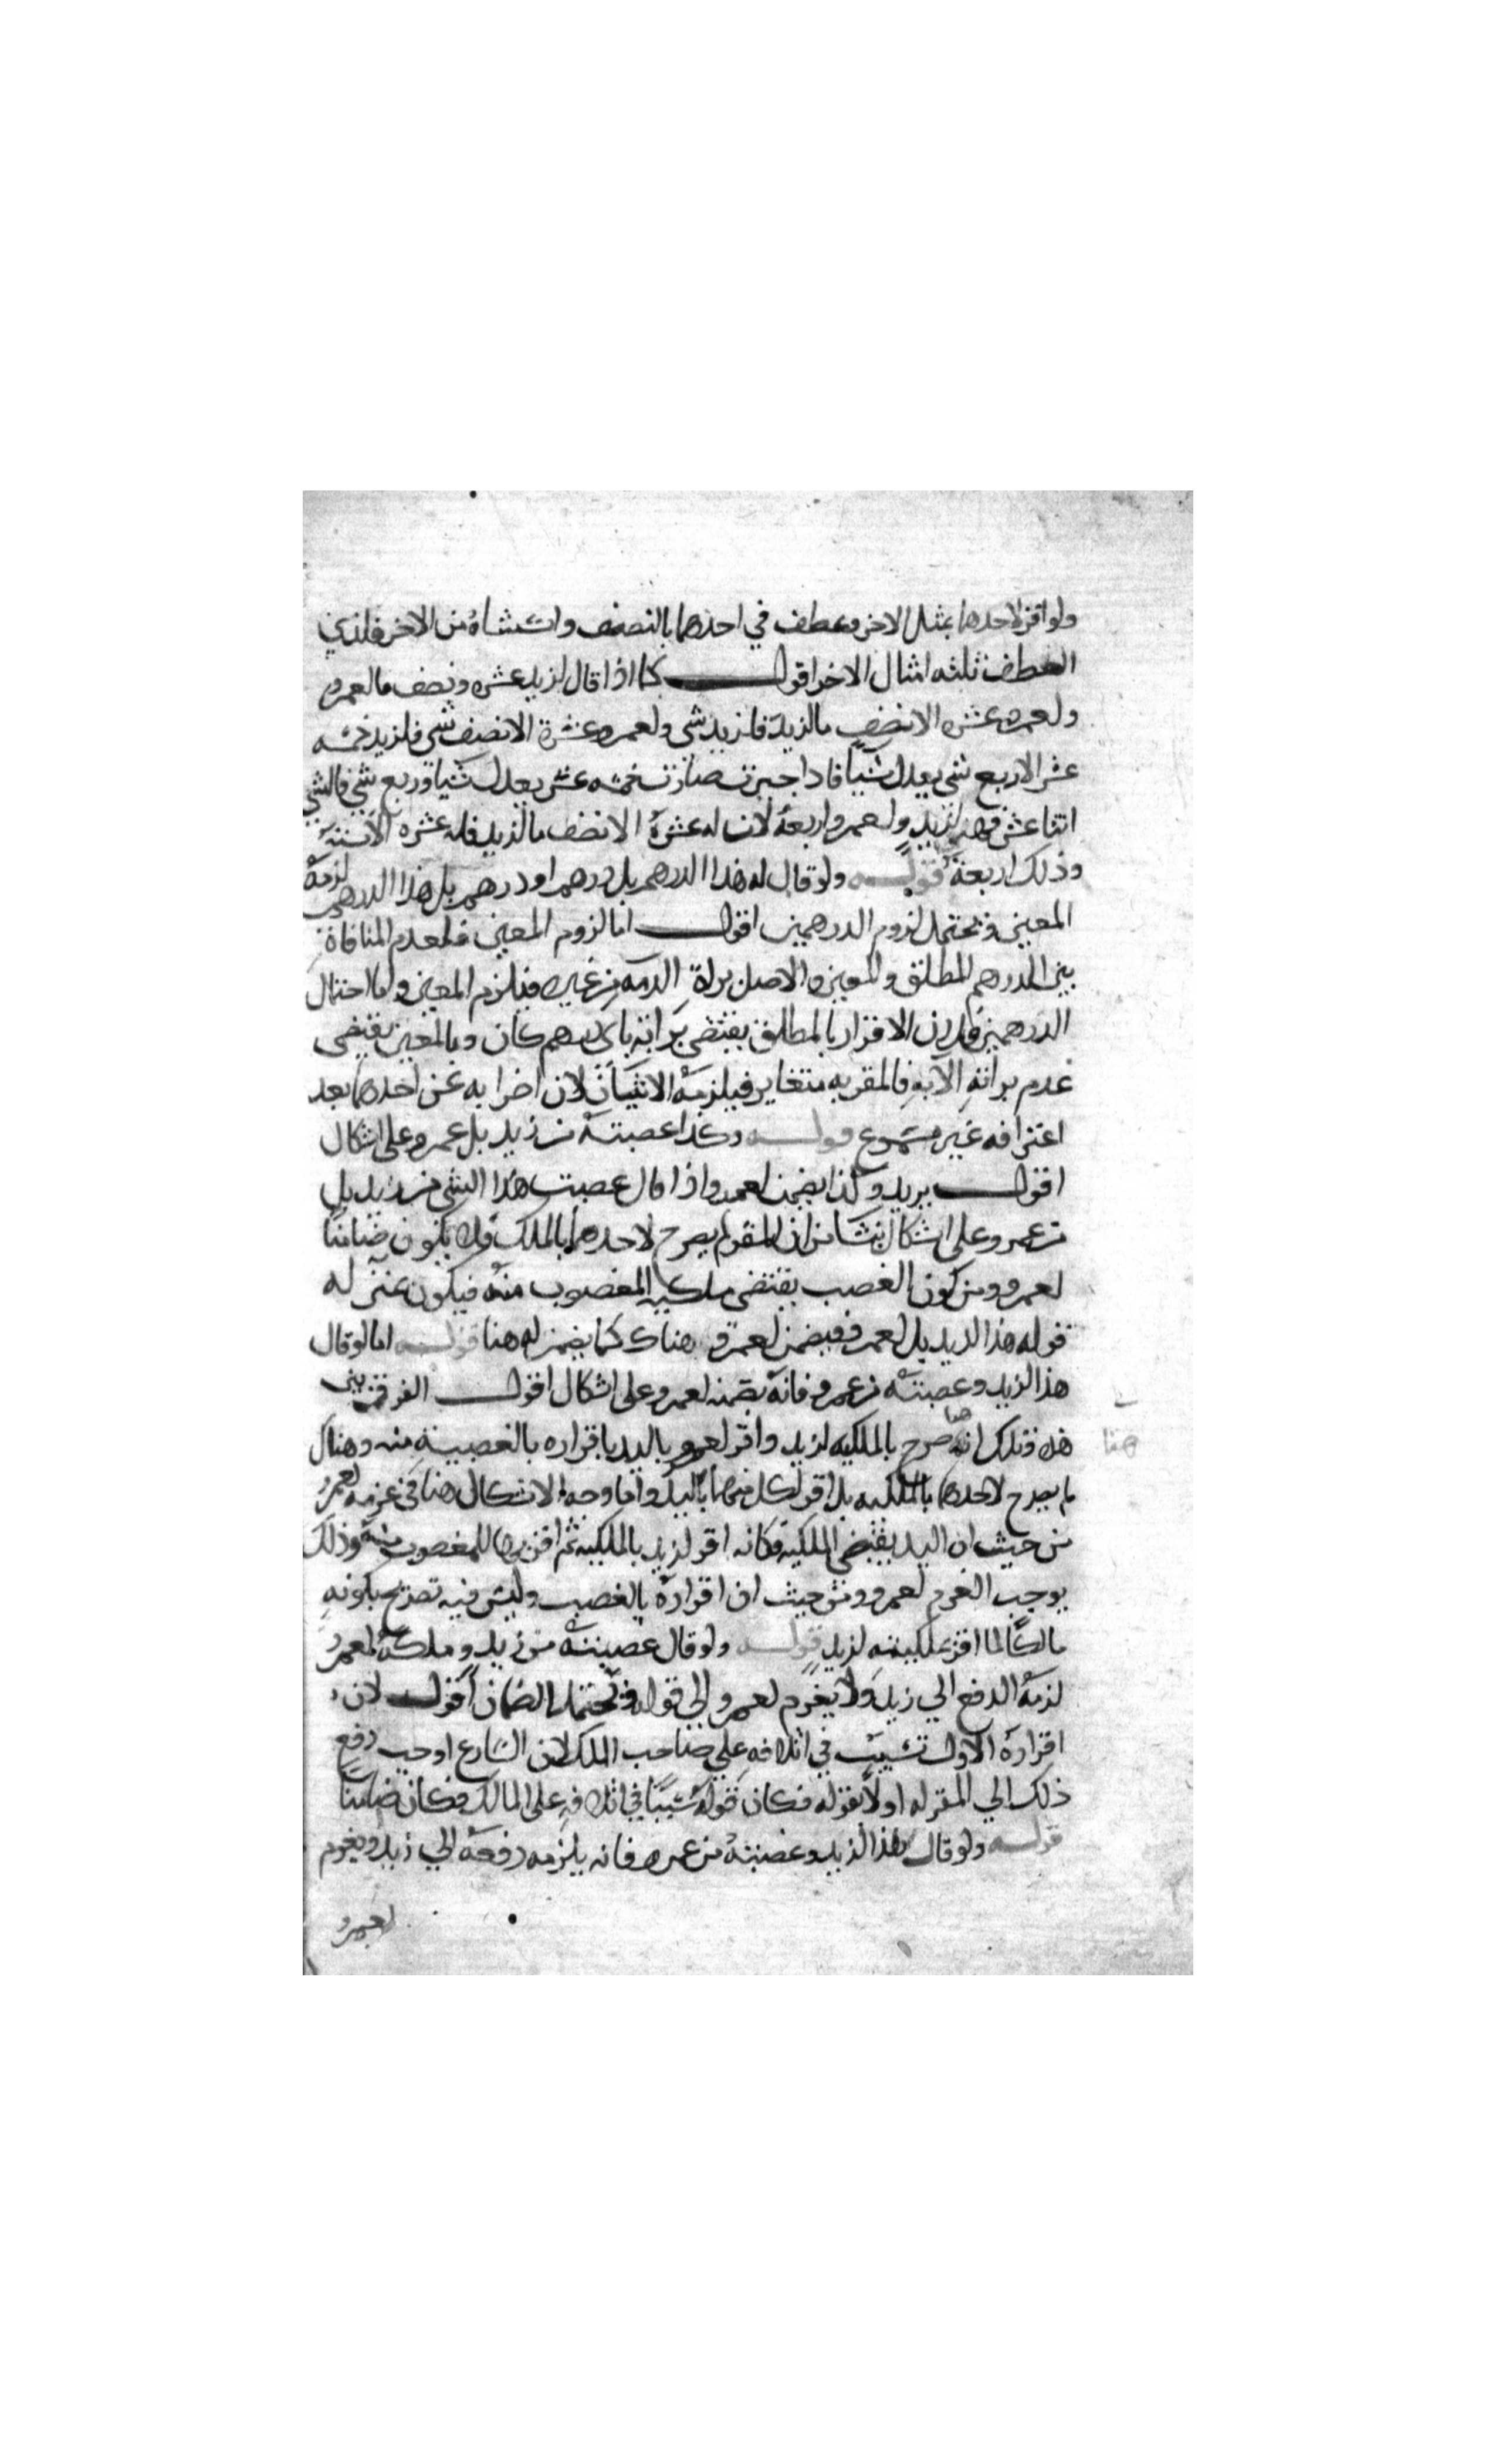 ولو اقر لاحدهما بمثل الاخر وعطف في احدهما بالنصف واستثناه من الاخر فلذي
العطف ثلثه امثال الاخر اقول كما اذا قال لزيد عشره ونصف ما لعمرو
ولعمرو عشره الا نصف ما لزيد فلزيد شي ولعمرو عشرة الا نصف شي فلزيد خمسه
عشر الا ربع شي يعدل شيا فاذا جبرت صارت خمسه عشر يعدل شيا وربع شي فالشي
اثنا عشر فهي لزيد ولعمرو اربعة لان له عشرة الا نصف ما لزيد فله عشره الا ستة
وذلك اربعة قوله ولو قال له هذا الدرهم بل درهم او درهم بل هذا الدرهم لزمه
المعين ويحتمل لزوم الدرهمين اقول اما لزوم المعين فلعدم المنافاة
بين الدرهم المطلق والمعين والاصل براة الذمه من غيره فيلزم المعين واما احتمال
الدرهمين فلان الاقرار بالمطلق يقتضي براته باي درهم كان وبالمعين يقتضي
عدم براته الا به فالمقر به متغاير فيلزمه الاثنان لان اضرابه عن احدهما بعد
اعترافه غير مسموع قوله وكذا غصبته من زيد بل عمرو على اشكال
اقول يريد وكذا يضمن لعمرو اذا قال غصبت هذا الشي من زيد بل
من عمرو وعلى اشكال ينشا من ان المقر لم يصرح لاحدهما بالملك فلا يكون ضامنا
لعمرو ومن كون الغصب يقتضي ملكيه المغصوب منه فيكون بمنزله
قوله هذا لزيد بل لعمرو فيضمن لعمرو هناك كما يضمن له هنا قوله اما لو قال
هذا لزيد وغصبته من عمرو فانه يضمنه لعمرو على اشكال اقول الفرق بين
هذه وتلك انه هنا صرح بالملكيه لزيد واقر لعمرو باليد باقراره بالغصبية منه وهناك
لم يصرح لاحدهما بالملكيه بل اقر لكل منهما باليد واما وجه الاشكال هنا في غرمه لعمرو
من حيث ان اليد يقتضي الملكيه فكانه اقر لزيد بالملكيه ثم اقر بها للمغصوب منه وذلك
يوجب الغرم لعمرو ومن حيث ان اقراره بالغصب وليس فيه تصريح بكونه
مالكا لما اقر بملكيته لزيد قوله ولو قال غصبته من زيد وملكه لعمرو
لزمه الدفع الي زيد ولا يغرم لعمرو الي قوله ويحتمل الضمان اقول لان
اقراره الاول تسبب في اتلافه علي صاحب الملك لان الشارع اوجب دفع
ذلك الي المقر له اولا بقوله فكان قوله سببا في اتلافه على المالك فكان ضامنا
قوله ولو قال هذا لزيد وغصبته من عمرو فانه يلزمه دفعه الي زيد ويغرم
لعمرو
هنا